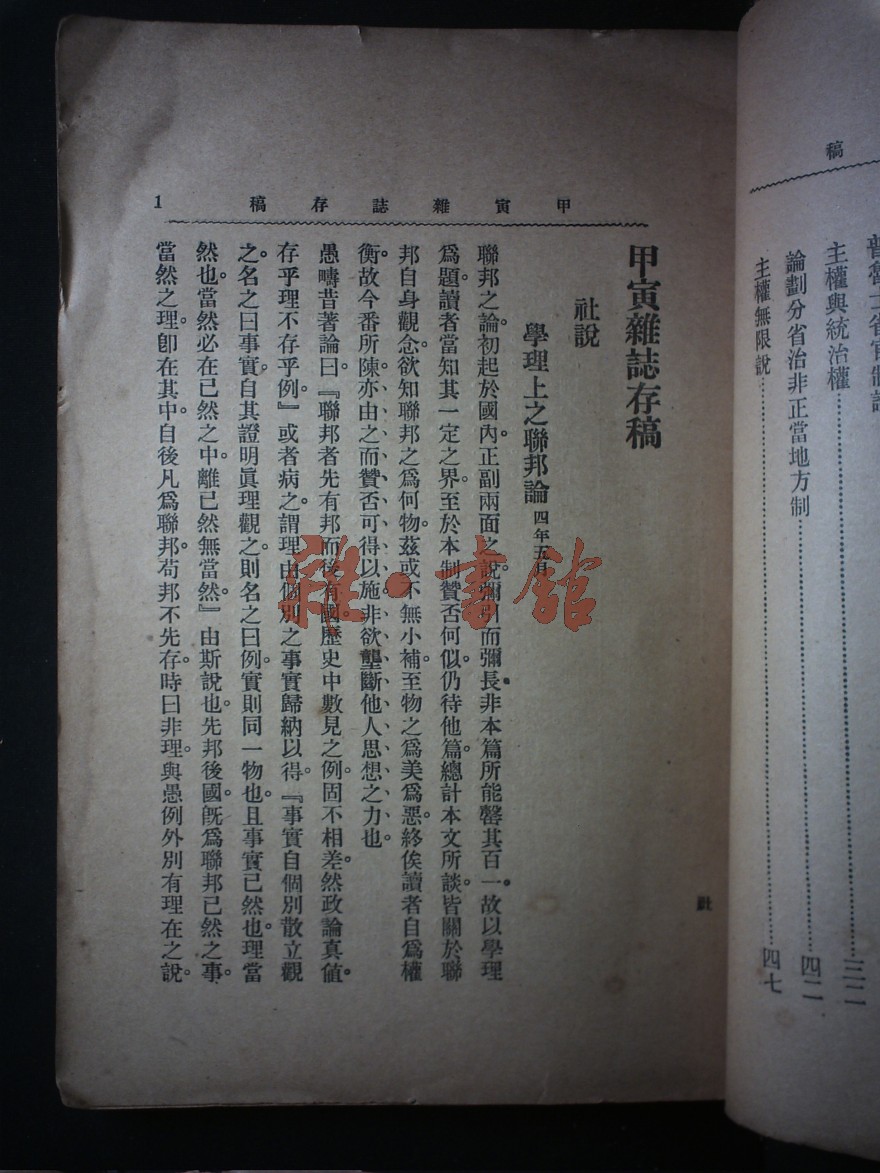 稿
普魯士省官制說
主權與統治權………三二
論劃分省治非正當地方制………四二
主權無限說………四七
甲寅雜誌存稿
1
甲寅雜誌存稿
社說
學理上之聯邦論 四年五月
聯邦之論。初起於國內。正副兩面之說。彌引而彌長。非本篇所能罄其百一。故以學理
爲題。讀者當知其一定之界。至於本制贊否何似。仍待他篇總計。本文所談。皆關於聯
邦自身觀念。欲知聯邦之爲何物。茲或不無小補。至物之爲美爲惡。終俟讀者自爲權
衡。故今番所陳、亦由之而贊否可得以施、非欲壟斷他人思想之力也。
愚疇昔著論曰。『聯邦者先有邦而後有國。歷史中數見之例。固不相差。然政論真值。
存乎理不存乎例。』或者病之。謂理由個別之事實歸納以得。『事實自個別散立觀
之。名之曰事實。自其證明眞理觀之。則名之曰例。實則同一物也。且事實已然也。理當
然也。當然必在已然之中。離已然無當然。』由斯說也。先邦後國。旣爲聯邦已然之事。
當然之理。卽在其中。自後凡爲聯邦。苟邦不先存。時曰非理。與愚例外別有理在之說。
社
雜·書館